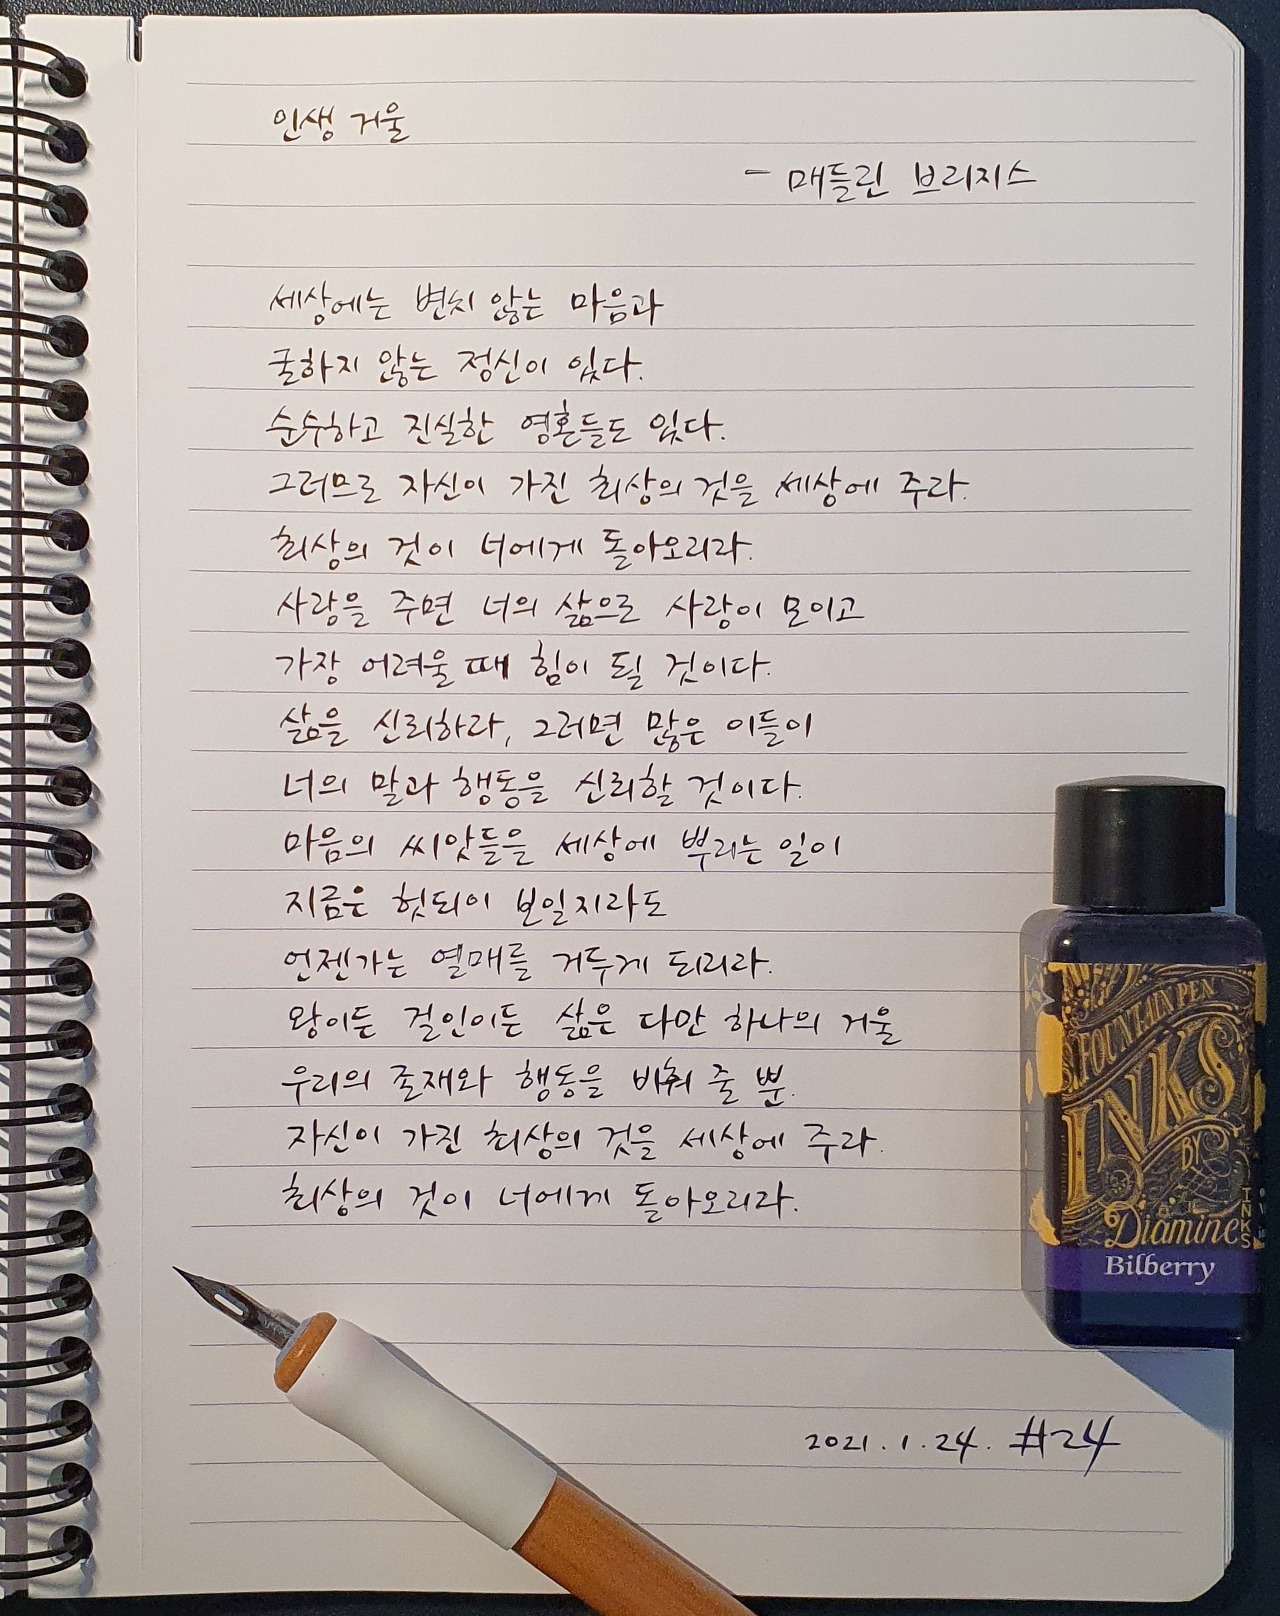 인생 거울
- 매들린 브리지스
세상에는 변치 않는 마음과
굴하지 않는 정신이 있다.
순수하고 진실한 영혼들도 있다.
그러므로 자신이 가진 최상의 것을 세상에 주라.
최상의 것이 너에게 돌아오리라.
사랑을 주면 너의 삶으로 사랑이 모이고
가장 어려울 때 힘이 될 것이다.
삶을 신뢰하라, 그러면 많은 이들이
너의 말과 행동을 신뢰할 것이다.
마음의 씨앗들을 세상에 뿌리는 일이
지금은 헛되이 보일지라도
언젠가는 열매를 거두게 되리라.
왕이든 걸인이든 삶은 다만 하나의 거울
우리의 존재와 행동을 비춰 줄 뿐.
자신이 가진 최상의 것을 세상에 주라.
최상의 것이 너에게 돌아오리라.
FOUNTAIN PEN
INKS
BY
Diamine
INKS
Bilberry
2021. 1. 24. #24